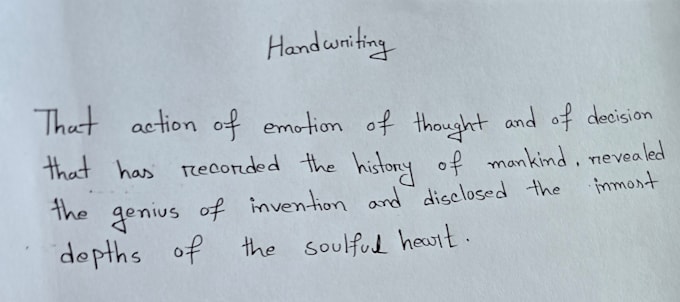 Handwriting
That action of emotion of thought and of decision
that has recorded the history of mankind, revealed
the genius of invention and disclosed the inmost
depths of the soulful heart.